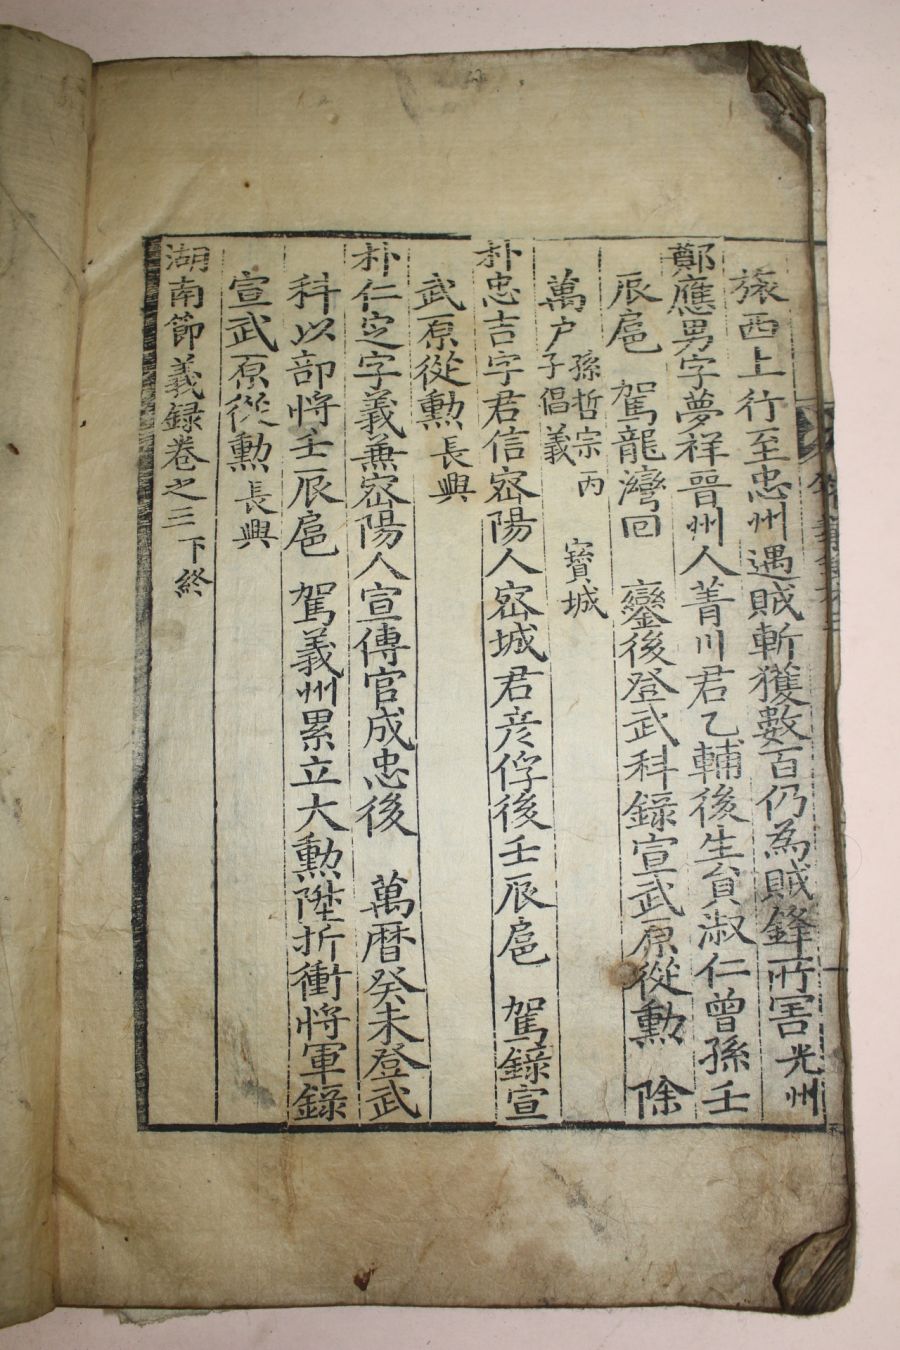 旅西上行至忠州遇賊斬獲數百仍為賊鋒所害光州
鄭應男字夢祥晉州人菁川君乙輔後生貟淑仁曾孫壬
辰扈 駕龍灣回 鑾後登武科錄宣武原從勲 除
萬户孫哲宗丙子倡義 寳城
朴忠吉字君信宻陽人宻城君彦俘後壬辰扈 駕錄宣
武原從勲長興
朴仁定字義兼宻陽人宣傳官成忠後 萬曆癸未登武
科以部將壬辰扈 駕義州累立大勲陞折衝將軍錄
宣武原從勲長興
湖南節義録卷之三下終